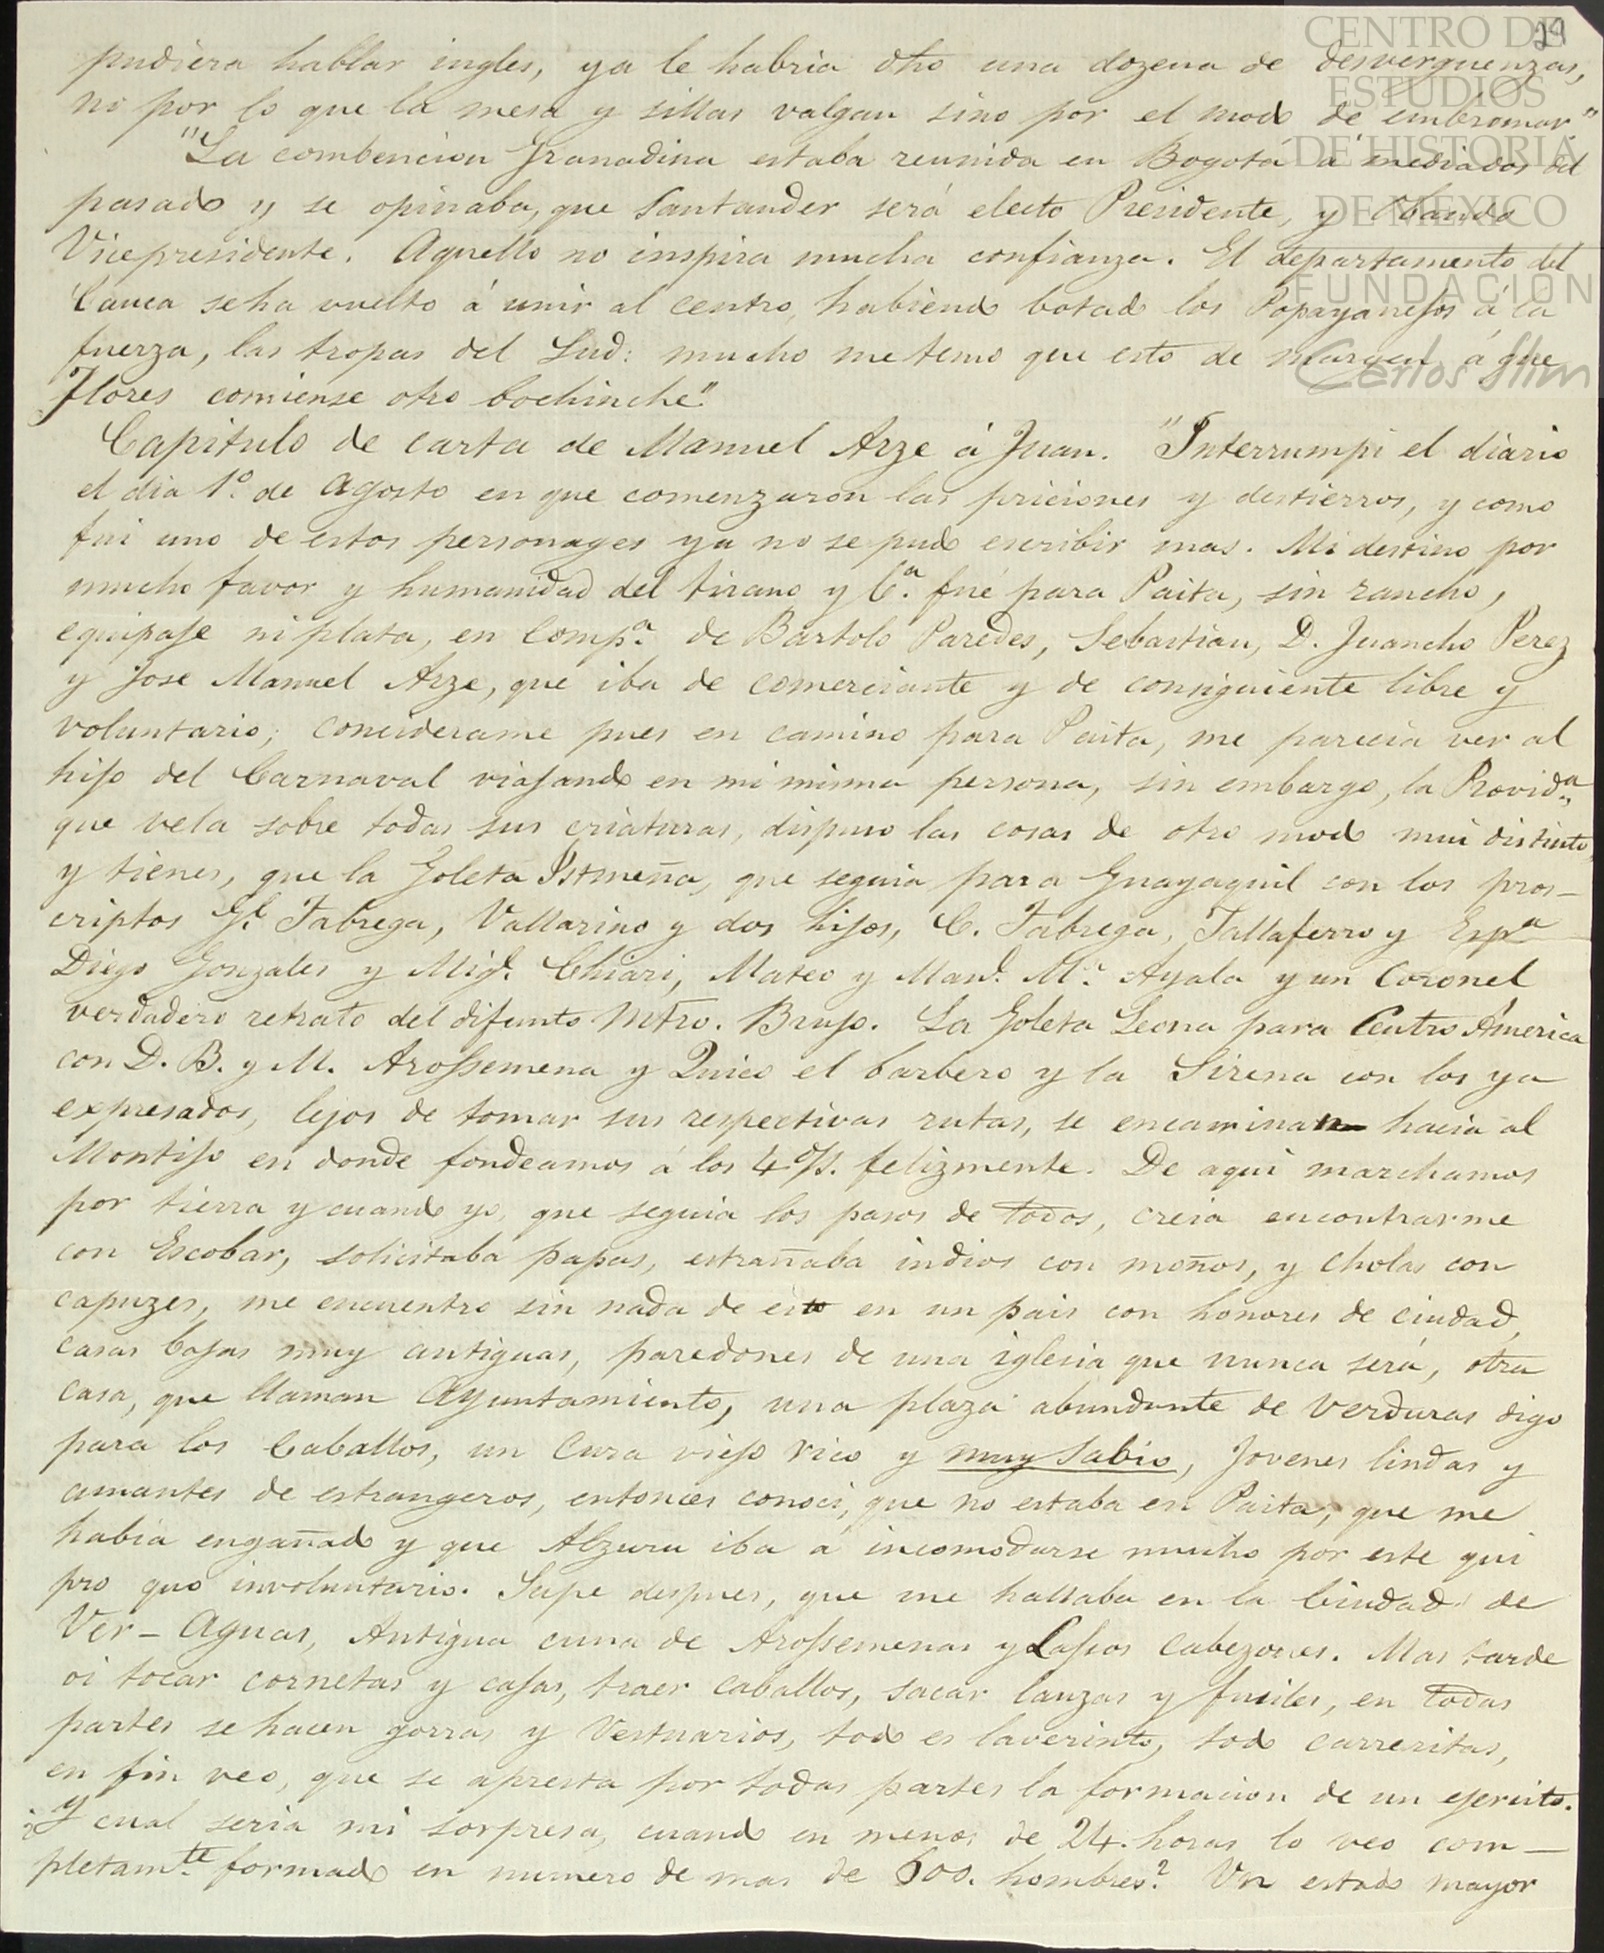 29
CENTRO DE
ESTUDIOS
DE HISTORIA
DE MEXICO
FUNDACION
Carlos Slim
pudiera hablar ingles, ya le habria dho una dozena de desverguenzas,
no por lo que la mesa y sillas valgan sino por el modo de embromar"
"La combencion Granadina estaba reunida en Bogotá a mediados del
pasado y se opinaba, que Santander será electo Presidente, y Obando
Vicepresidente. Aquello no inspira mucha confianza. El departamento del
Cauca se ha vuelto á unir al centro, habiendo botado los Popayanesos á la
fuerza, las tropas del Sud: mucho me temo que esto de margen á que
Flores comiense otro bochinche."
Capitulo de carta de Manuel Arze á Juan. "Interrumpi el diario
el dia 1º de Agosto en que comenzaron las priciones y destierros, y como
fui uno de estos personages ya no se pudo escribir mas. Mi destino por
mucho favor y humanidad del tirano y Cª. fué para Paita, sin rancho,
equipaje ni plata, en Compª. de Bartolo Paredes, Sebastian, D. Juancho Perez
y Jose Manuel Arze, que iba de comerciante y de consiguiente libre y
voluntario; conciderame pues en camino para Paita, me parecia ver al
hijo del Carnaval viajando en mi misma persona, sin embargo, la Providª.
que vela sobre todas sus criaturas, dispuso las cosas de otro modo mui distinto,
y tienes, que la Goleta Istmeña, que seguia para Guayaquil con los pros-
criptos Gl. Fabrega, Vallarino y dos hijos, C. Fabrega, Tallaferro y Espª
Diego Gonzales y Migl. Chiari, Mateo y Manl. Mª. Ayala y un Coronel
verdadero retrato del difunto Mtro. Brujo. La Goleta Leona para Centro América
con D. B. y M. Arossemena y Quico el barbero y la Sirena con los ya
expresados, lejos de tomar sus respectivas rutas, se encaminan hacia al
Montijo en donde fondeamos á los 4 ds. felizmente. De aqui marchamos
por tierra y cuando yo, que seguia los pasos de todos, creia encontrarme
con Escobar, solicitaba papas, estrañaba indios con moños, y cholas con
capuzes, me encuentro sin nada de esto en un pais con honores de ciudad,
casas bajas muy antiguas, paredones de una iglesia que nunca será, otra
casa, que llaman Ayuntamiento, una plaza abundante de verduras digo
para los Caballos, un Cura viejo rico y muy sabio, Jovenes lindas y
amantes de estrangeros, entonces conoci, que no estaba en Paita, que me
habia engañado y que Alzuru iba á incomodarse mucho por este qui
pro quo involuntario. Supe despues, que me hallaba en la Ciudad de
Ver-Aguas, Antigua cuna de Arossemenas y Lassos Cabezones. Mas tarde
oi tocar cornetas y cajas, traer caballos, sacar lanzas y fusiles, en todas
partes se hacen gorras y Vestuarios, todo es laverinto, todo carreritas,
en fin veo, que se apresta por todas partes la formacion de un ejercito.
¿Y cual seria mi sorpresa, cuando en menos de 24. horas lo veo com-
pletamte. formado en numero de mas de 600. hombres? Un estado mayor